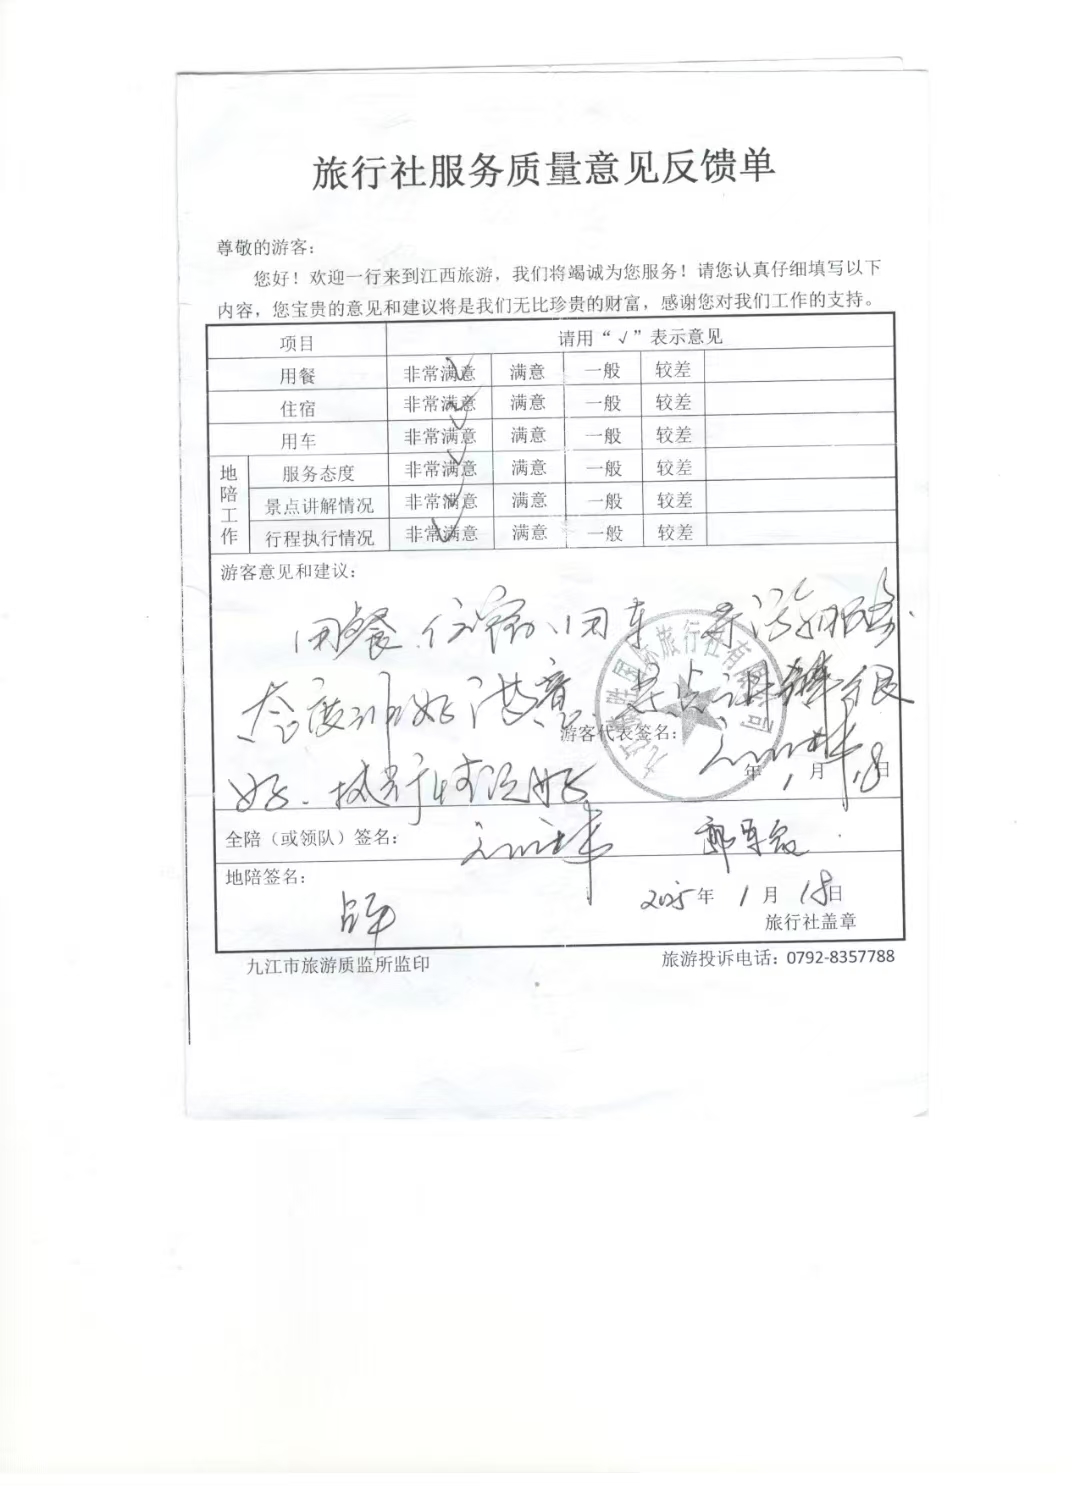 旅行社服务质量意见反馈单
尊敬的游客：
您好！欢迎一行来到江西旅游，我们将竭诚为您服务！请您认真仔细填写以下
内容，您宝贵的意见和建议将是我们无比珍贵的财富，感谢您对我们工作的支持。
项目 请用“√”表示意见
用餐 非常满意 √ 满意 一般 较差
住宿 非常满意 √ 满意 一般 较差
用车 非常满意 √ 满意 一般 较差
地陪工作
服务态度 非常满意 √ 满意 一般 较差
景点讲解情况 非常满意 √ 满意 一般 较差
行程执行情况 非常满意 √ 满意 一般 较差
游客意见和建议：
用餐、住宿、用车
态度非常好 满意 景点讲解很
好、执行情况好
国际旅行社有限公司
游客代表签名：
年 1 月 18 日
全陪（或领队）签名：
地陪签名：
2025 年 1 月 18 日
旅行社盖章
九江市旅游质监所监印 旅游投诉电话：0792-8357788